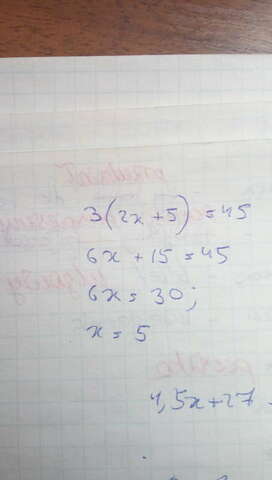 3(2x+5)=45
6x + 15 = 45
6x = 30;
x = 5
4,5x+27